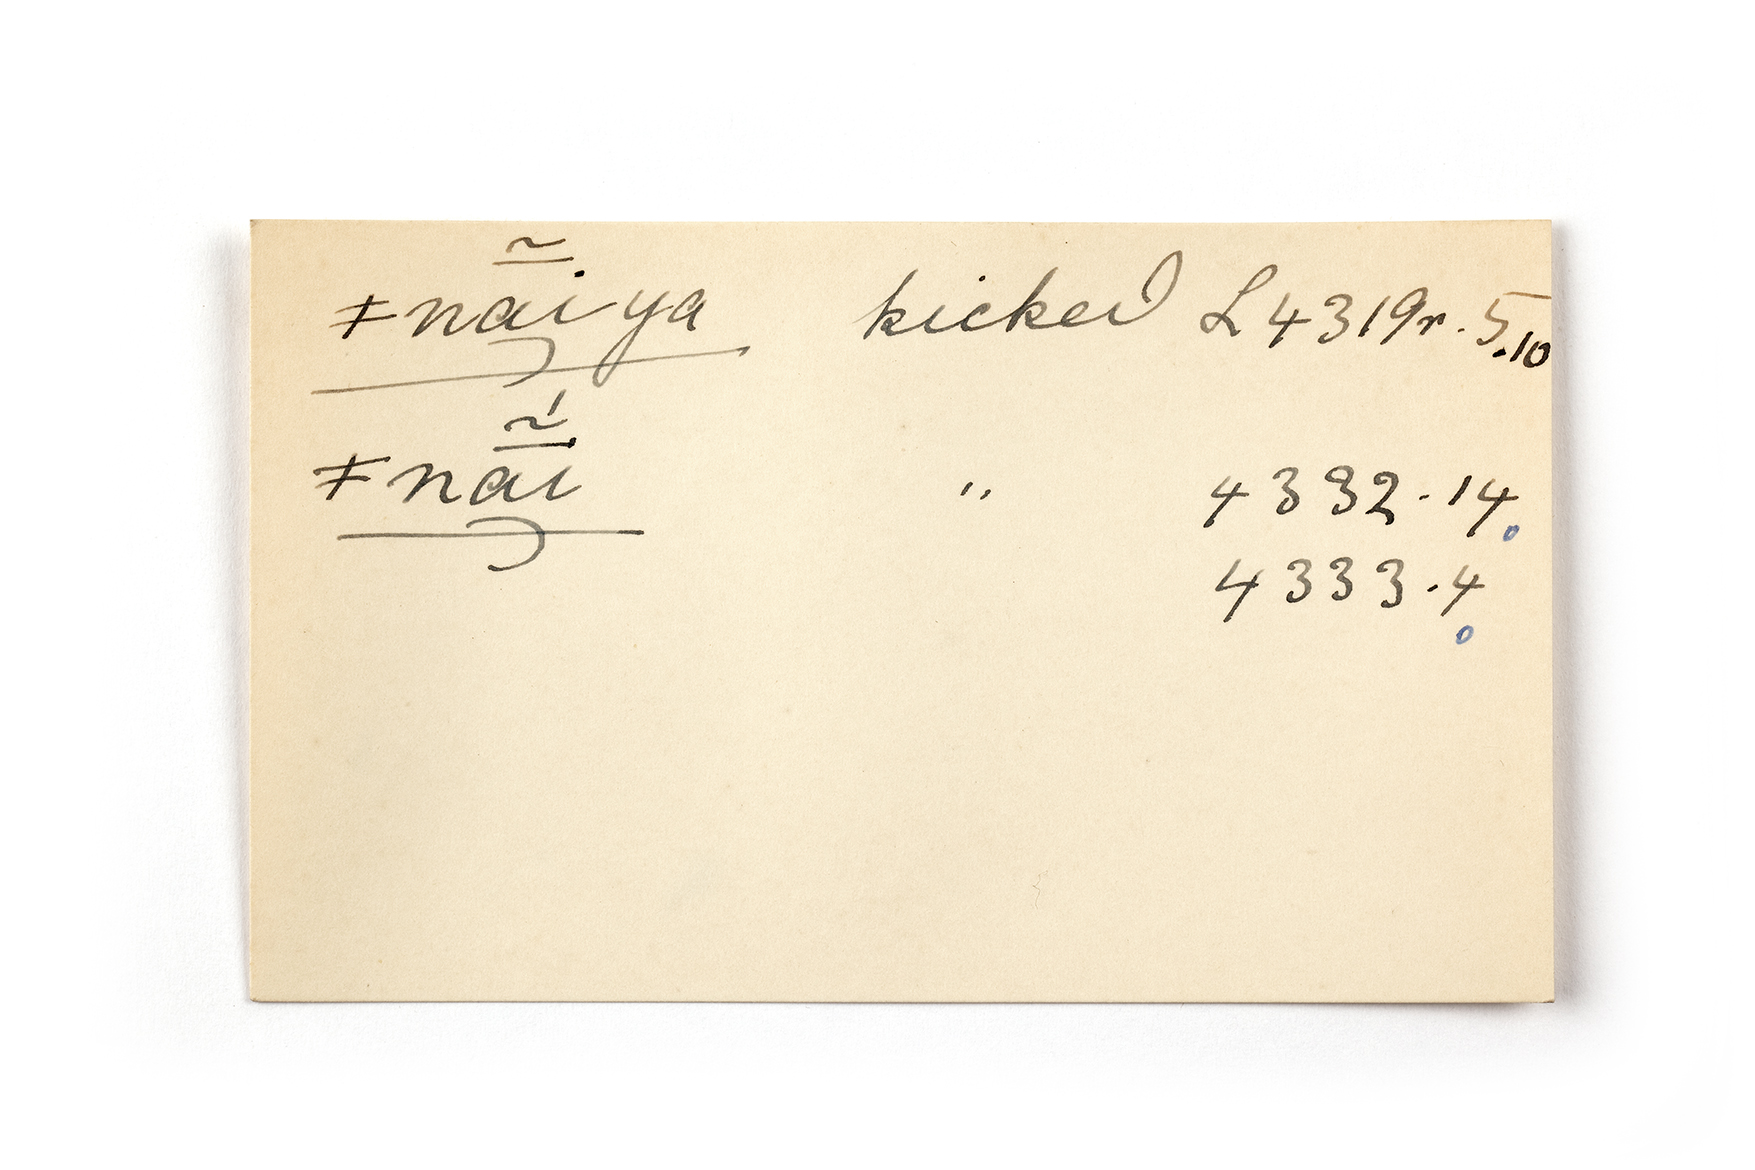 ǂnãi ya kicked L 4319r. 5.10
ǂnãí " 4332.14
4333.4